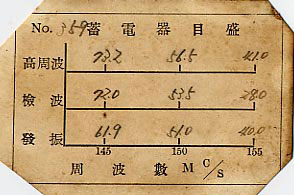 No. 359 蓄電器目盛
高周波 73.2 56.5 41.0
檢波 72.0 53.5 38.0
發振 61.9 51.0 40.0
145 150 155
周波數 M C/s